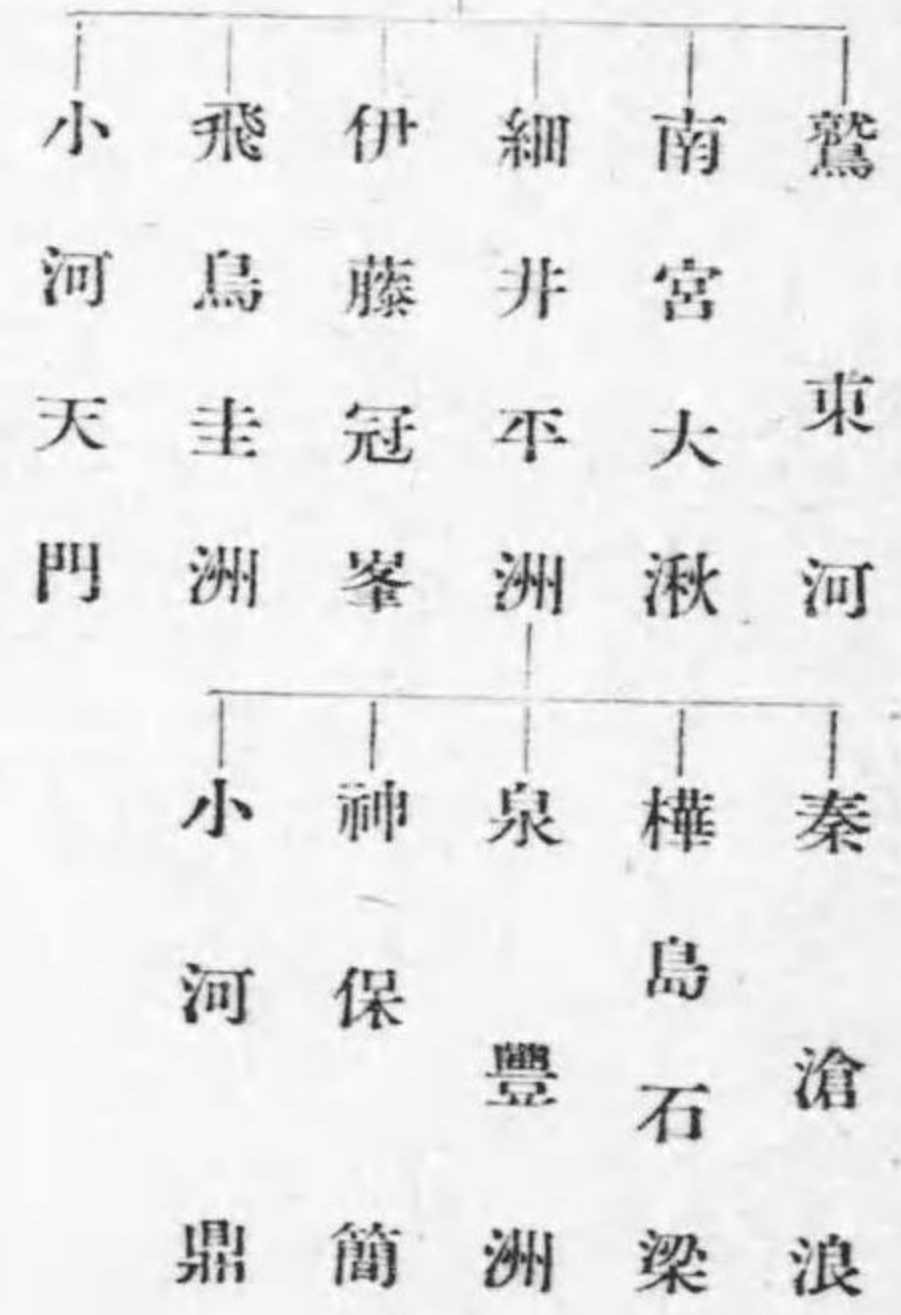 鷲東河
南宮大湫
細井平洲
伊藤冠峯
飛鳥圭洲
小河天門
秦滄浪
樺島石梁
泉豐洲
神保簡
小河鼎